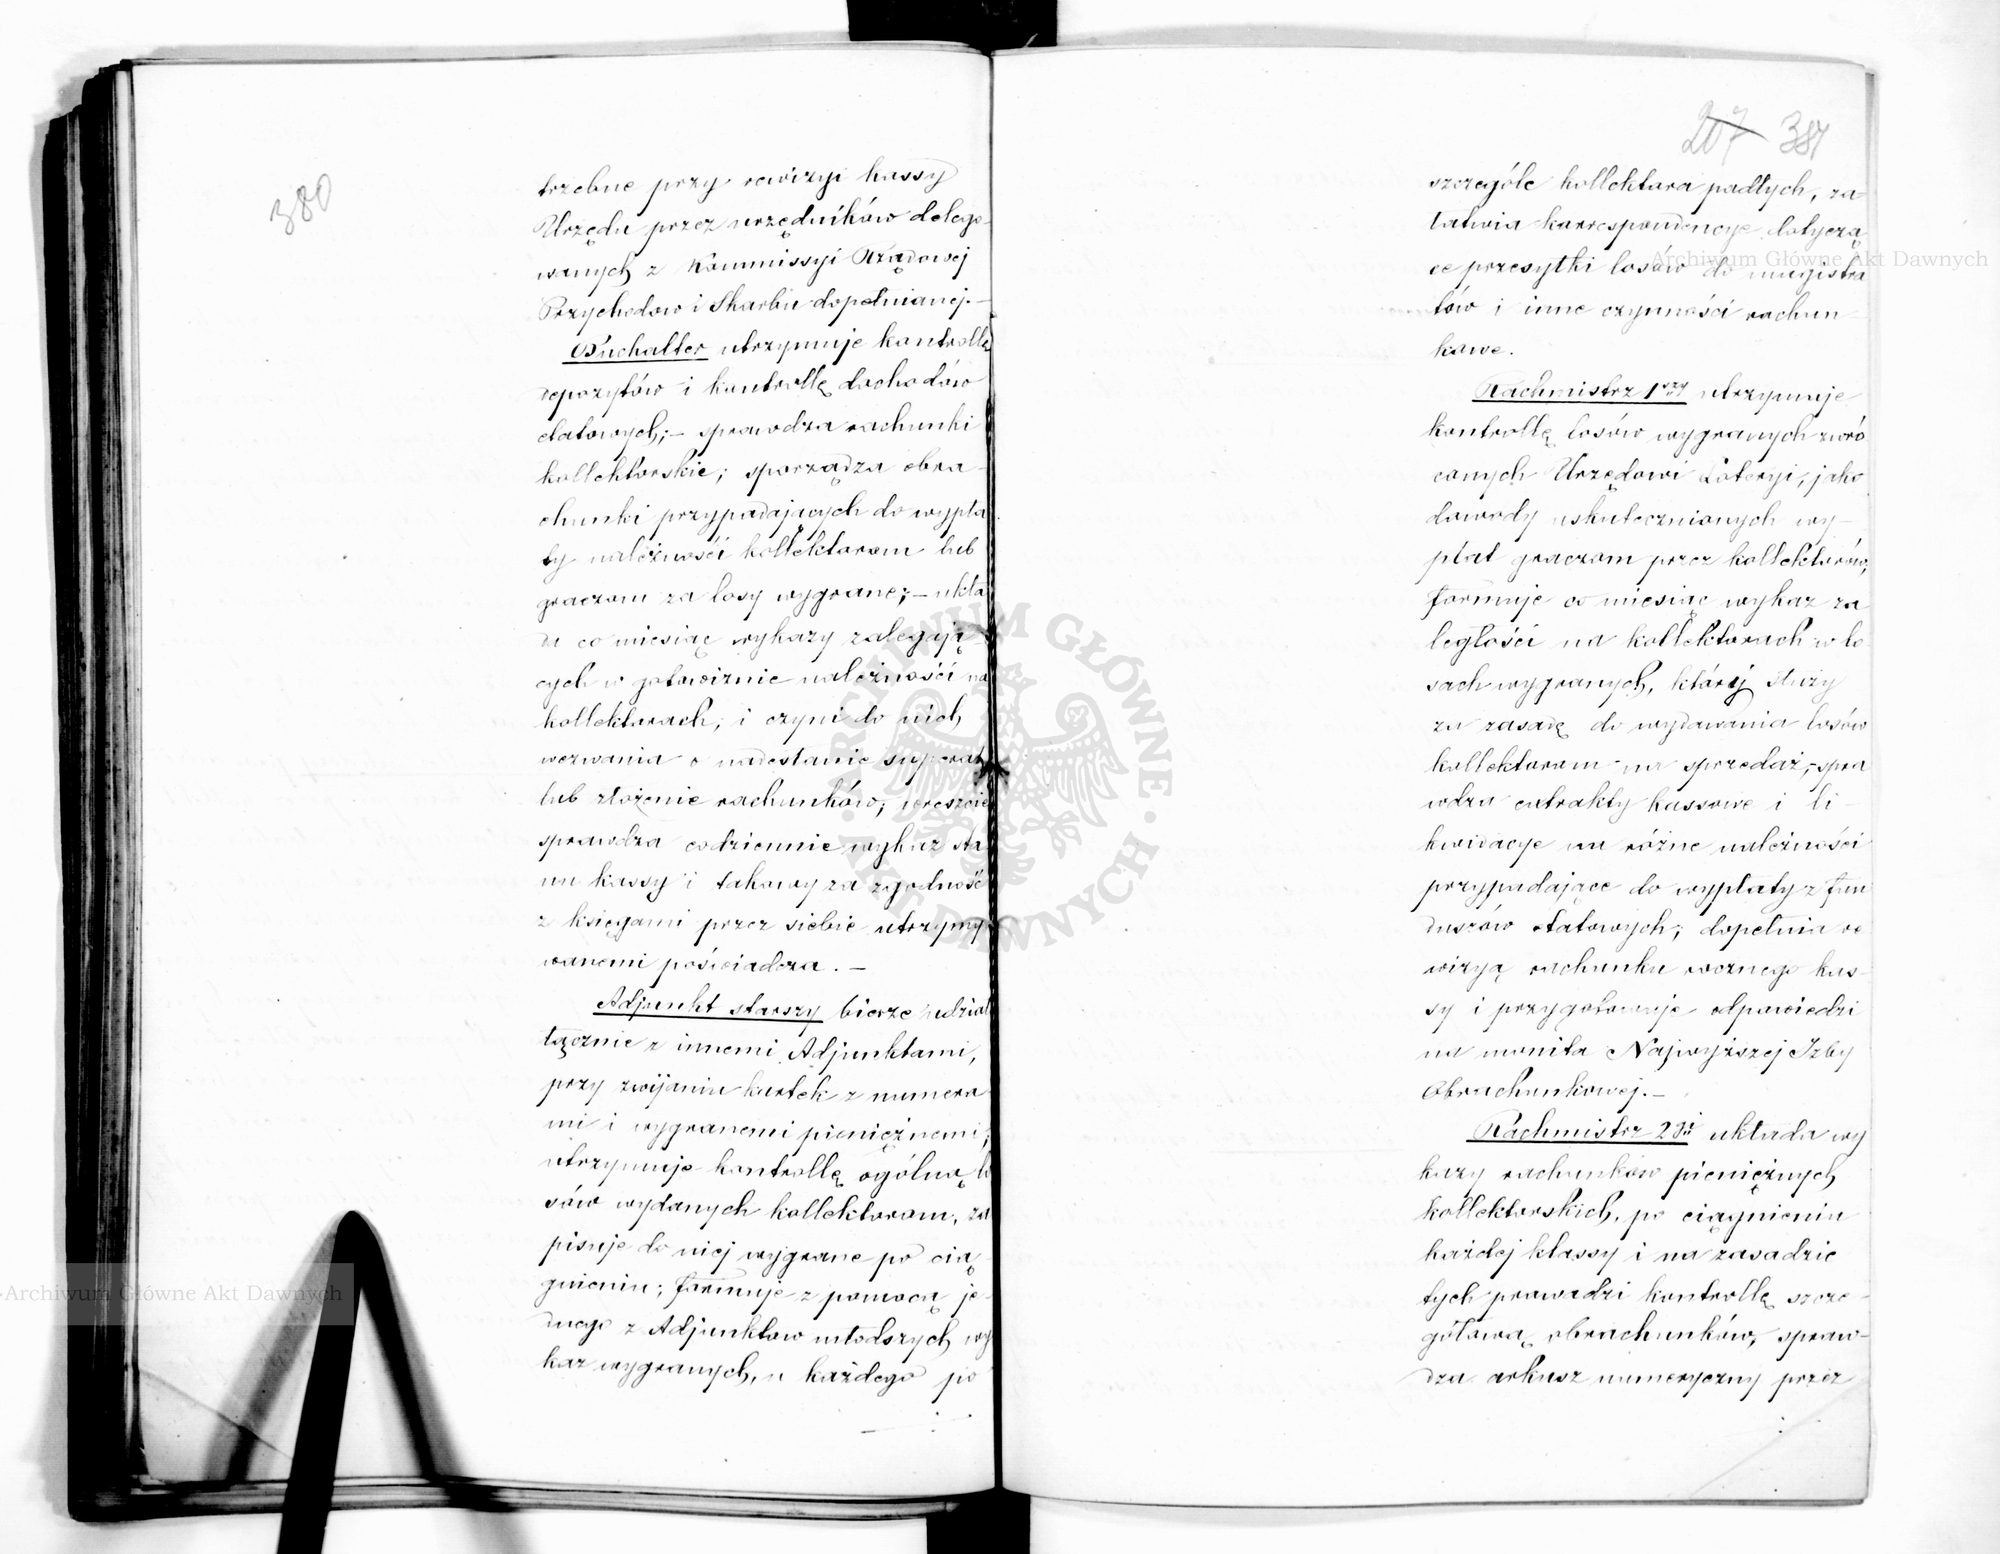 380
trzebne przy rewizyi kassy
Urzędu przez urzędników delego-
wanych z Kommissyi Rządowej
Przychodow i Skarbu dopełnianej.—
Buchalter utrzymuje kontrollę
depozytów i kontrollę dochodów
etatowych;— sprawdza rachunki
kollektorskie; sporządza obra-
chunki przypadających do wypła
ty należności kollektorom lub
graczom za losy wygrane;— ukła
da co miesiąc wykazy zalegają-
cych w gotowiznie należności na
kollektorach; i czyni do nich
wezwania o nadesłanie superat
lub złożenie rachunków; wreszcie
sprawdza codziennie wykaz sta
nu kassy i takowy za zgodność
z księgami przez siebie utrzymy
wanemi poświadcza.—
Adjunkt starszy bierze udział
łącznie z innemi Adjunktami,
przy zwijaniu kartek z numera
mi i wygranemi pieniężnemi;
utrzymuje kontrollę ogólną lo
sów wydanych kollektorom, za
pisuje do niej wygrane po cią
gnieniu; formuje z pomocą je-
dnego z Adjunktow młodszych wy
kaz wygranych, u każdego po
207 381
szczególe kollektora padłych, za
łatwia korrespondencye dotyczą
ce przesyłki losów do magistra
tów i inne czynności rachun
kowe.
Rachmistrz 1szy utrzymuje
kontrollę losów wygranych zwró
conych Urzędowi Loteryi, jako
dowody uskutecznionych wy-
płat graczom przez kollektorów,
formuje co miesiąc wykaz za
ległości na kollektorach w lo-
sach wygranych, który służy
za zasadę do wydawania losów
kollektorom na sprzedaż;— spra
wdza extrakty kassowe i li-
kwidacye na różne należności
przypadające do wypłaty z fun
duszów etatowych; dopełnia re
wizyą rachunku rocznego kas-
sy i przygotowuje odpowiedzi
na monita Najwyższej Izby
Obrachunkowej.—
Rachmistrz 2gi układa wy
kazy rachunków pieniężnych
kollektorskich, po ciągnieniu
każdej klassy i na zasadzie
tych prowadzi kontrollę szcze-
gółową obrachunków, spraw-
dza arkusz numeryczny przez
Archiwum Główne Akt Dawnych
Archiwum Główne Akt Dawnych
ARCHIWUM GŁÓWNE · AKT DAWNYCH ·